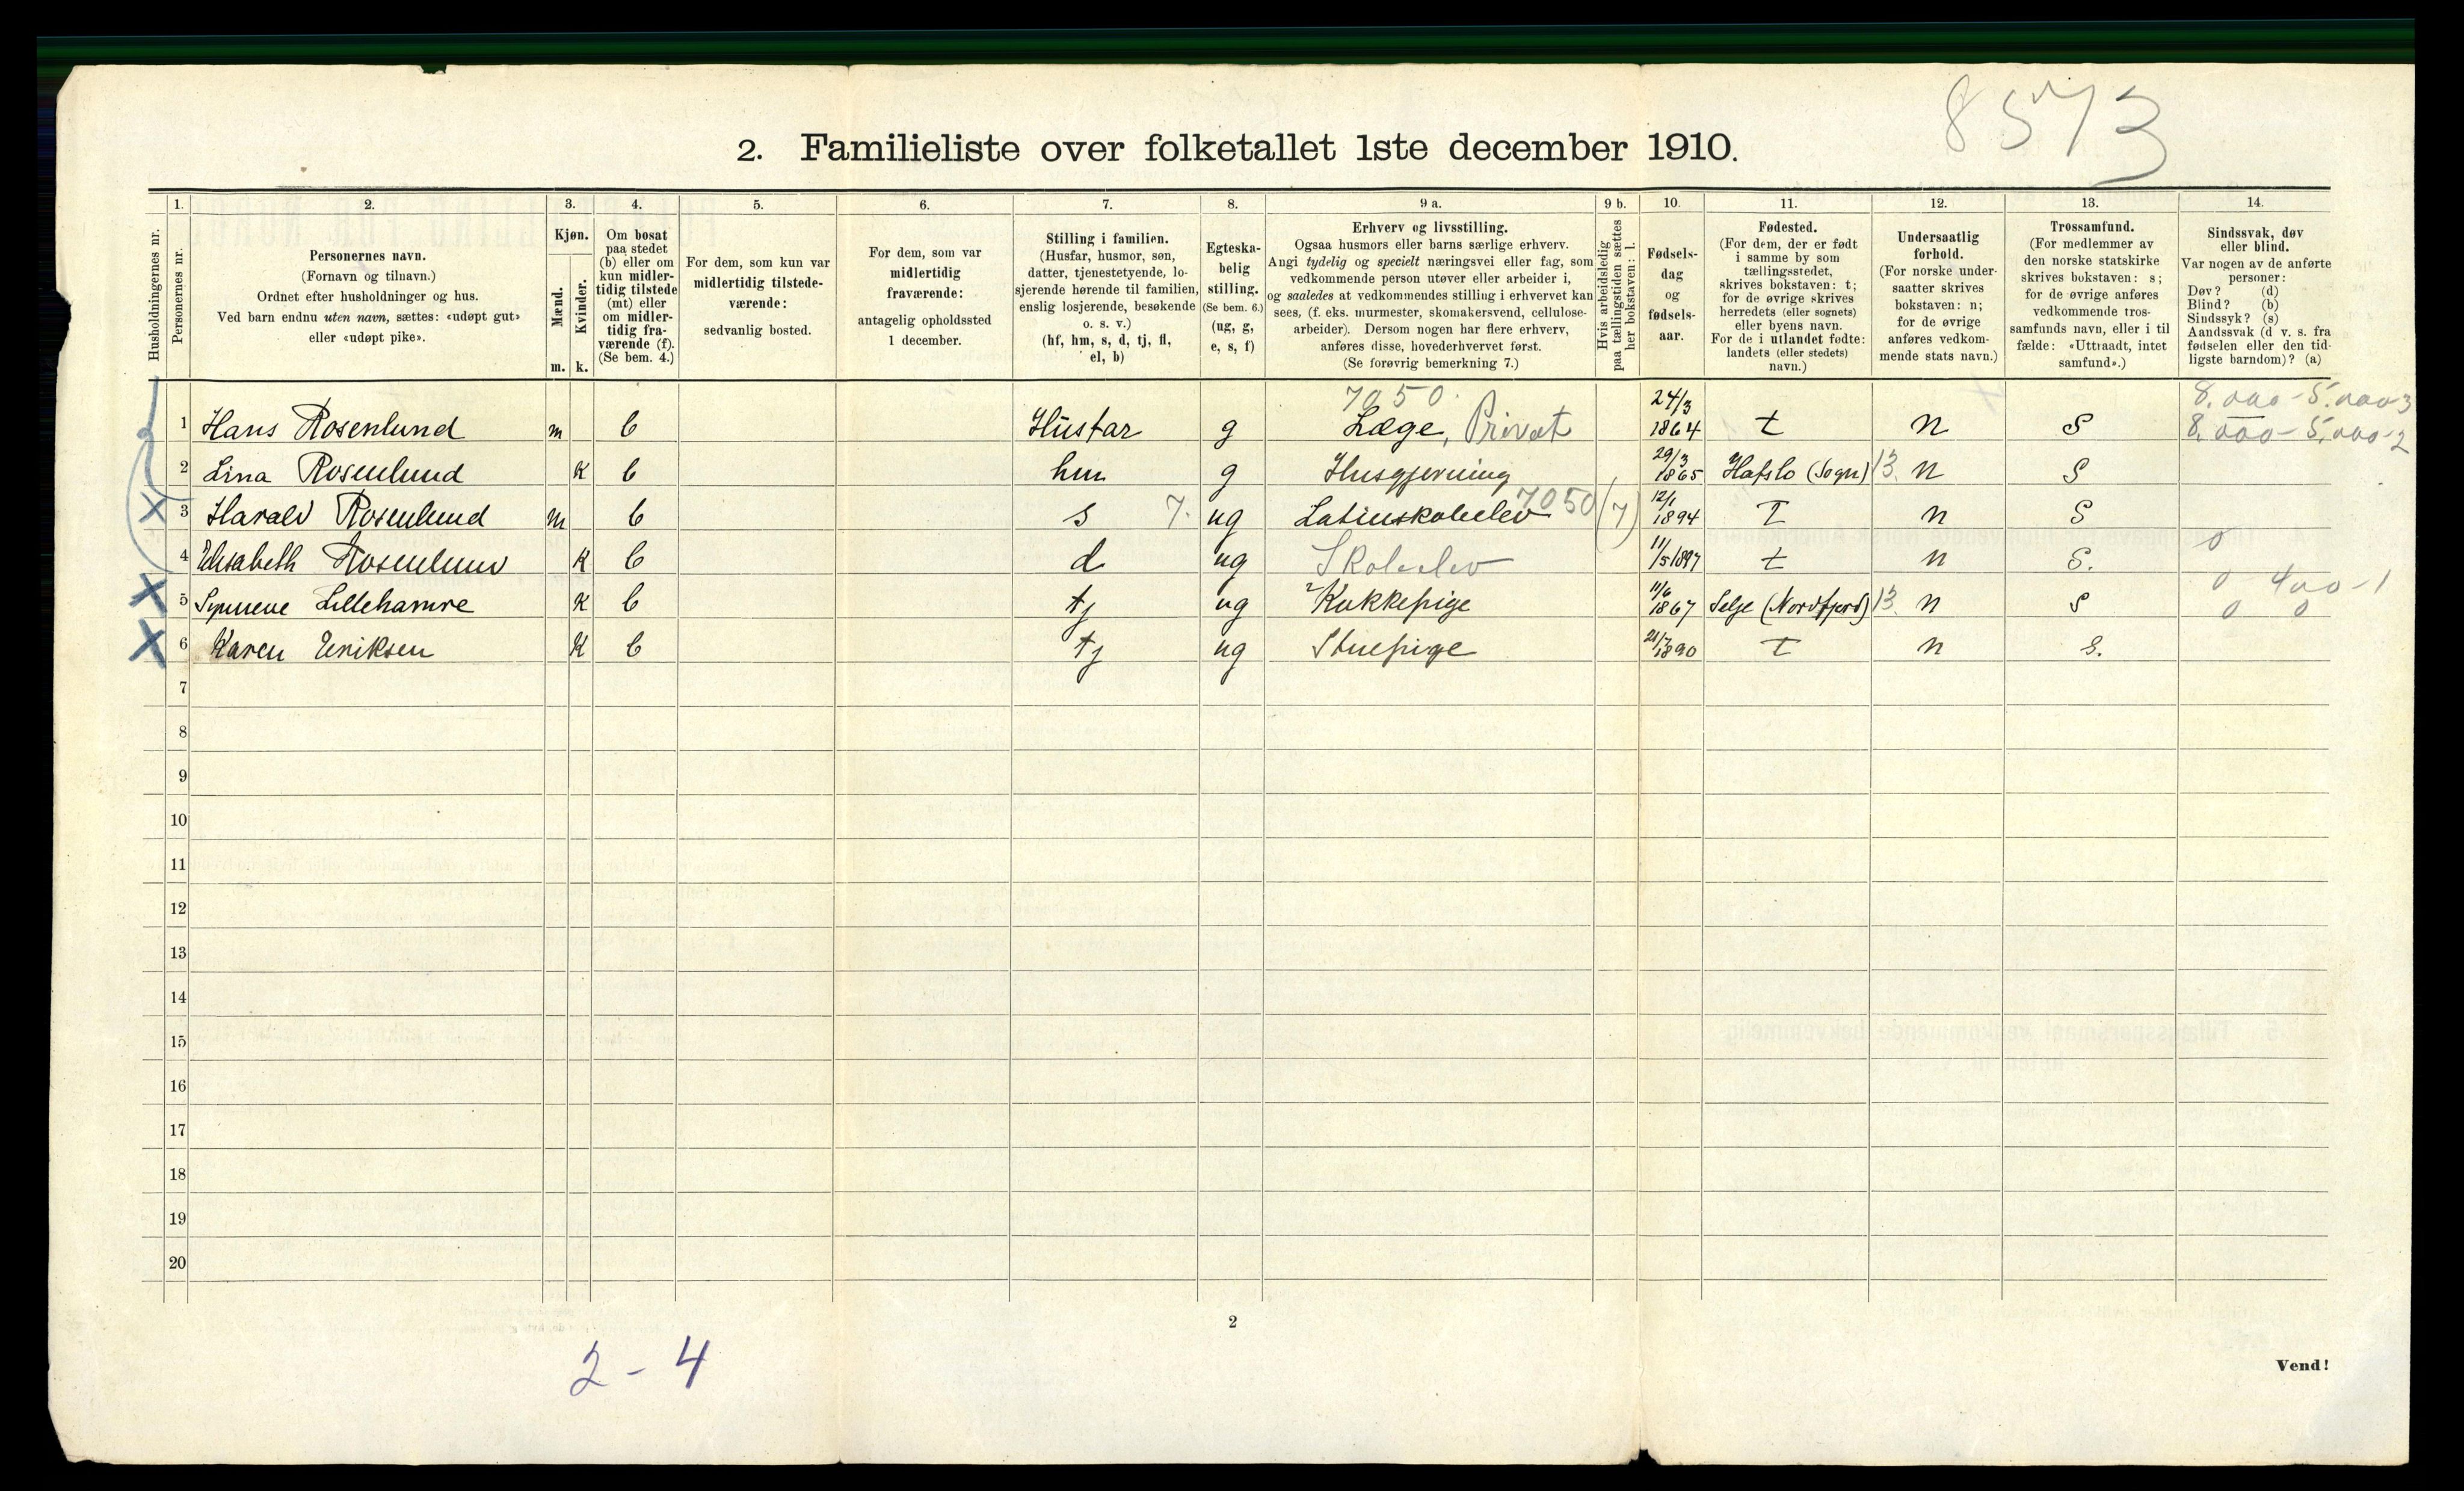 8573
2. Familieliste over folketallet 1ste december 1910.
Husholdningernes nr.
1. Personernes nr.
2. Personernes navn.
(Fornavn og tilnavn.)
Ordnet efter husholdninger og hus.
Ved barn endnu uten navn, sættes: «udøpt gut»
eller «udøpt pike».
3. Kjøn.
Mænd. Kvinder.
m. k.
4. Om bosat
paa stedet
(b) eller om
kun midler-
tidig tilstede
(mt) eller
om midler-
tidig fra-
værende (f).
(Se bem. 4.)
5. For dem, som kun var
midlertidig tilstede-
værende:
sedvanlig bosted.
6. For dem, som var
midlertidig
fraværende:
antagelig opholdssted
1 december.
7. Stilling i familien.
(Husfar, husmor, søn,
datter, tjenestetyende, lo-
sjerende hørende til familien,
enslig losjerende, besøkende
o. s. v.)
(hf, hm, s, d, tj, fl,
el, b)
8. Egteska-
belig
stilling.
(Se bem. 6.)
(ug, g,
e, s, f)
9 a. Erhverv og livsstilling.
Ogsaa husmors eller barns særlige erhverv.
Angi tydelig og specielt næringsvei eller fag, som
vedkommende person utøver eller arbeider i,
og saaledes at vedkommendes stilling i erhvervet kan
sees, (f. eks. murmester, skomakersvend, cellulose-
arbeider). Dersom nogen har flere erhverv,
anføres disse, hovederhvervet først.
(Se forøvrig bemerkning 7.)
9 b. Hvis arbeidsledig
paa tællingstiden sættes
her bokstaven: l.
10. Fødsels-
dag
og
fødsels-
aar.
11. Fødested.
(For dem, der er født
i samme by som
tællingsstedet,
skrives bokstaven: t;
for de øvrige skrives
herredets (eller sognets)
eller byens navn.
For de i utlandet fødte:
landets (eller stedets)
navn.)
12. Undersaatlig
forhold.
(For norske under-
saatter skrives
bokstaven: n;
for de øvrige
anføres vedkom-
mende stats navn.)
13. Trossamfund.
(For medlemmer av
den norske statskirke
skrives bokstaven: s;
for de øvrige anføres
vedkommende tros-
samfunds navn, eller i til
fælde: «Uttraadt, intet
samfund».)
14. Sindssvak, døv
eller blind.
Var nogen av de anførte
personer:
Døv? (d)
Blind? (b)
Sindssyk? (s)
Aandssvak (d v. s. fra
fødselen eller den tid-
ligste barndom)? (a)
7050. 8.000-5.000-3
1 Hans Rosenlund m b Husfar g Læge, Privat 24/3 1864 t n S 8.000-5.000-2
2 Lina Rosenlund K b hm g Husgjerning 29/3 1865 Hafslo (Sogn) 13. n S
X 3 Harald Rosenlund m b s 7. ug Latinskoleelev 7050 (7) 12/1 1894 T n S
4 Elisabeth Rosenlund K b d ug Skoleelev 11/5 1897 t n S. 0
X 5 Synneve Lillehamre K b tj ug Kokkepige 11/6 1867 Selje (Nordfjord) 13. n S 0 400-1
0 0
X 6 Karen Eriksen K b tj ug Stuepige 21/7 1890 T n S.
7
8
9
10
11
12
13
14
15
16
17
18
19
20
2
2-4
Vend!